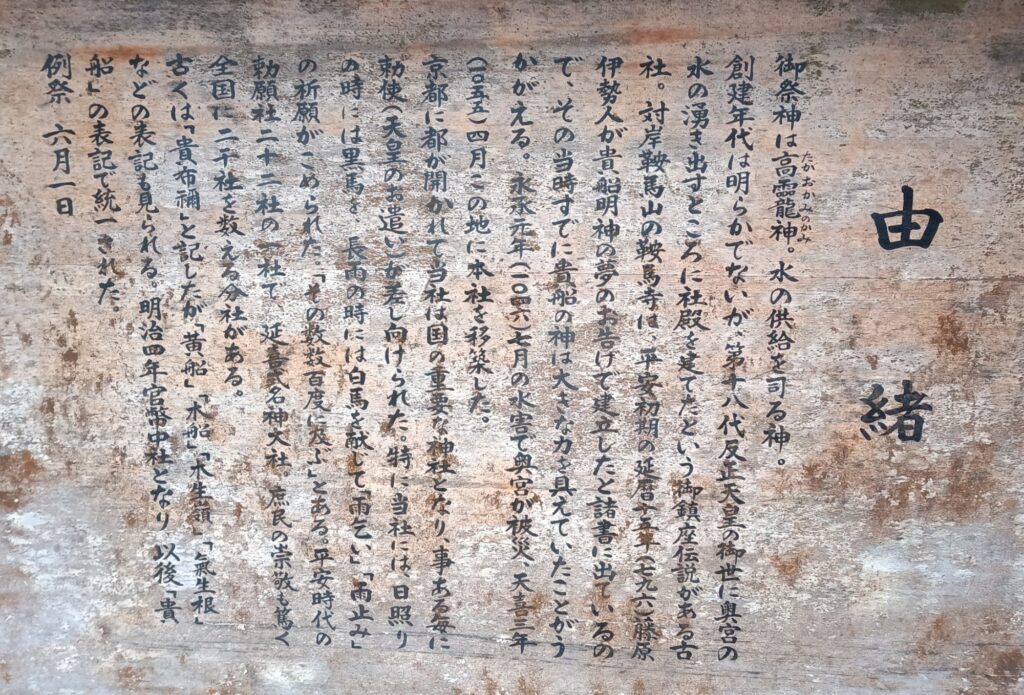 由緒
御祭神は高龗龍神。水の供給を司る神。
たかおかみのかみ
創建年代は明らかでないが、第十八代反正天皇の御世に奥宮の
水の湧き出すところに社殿を建てたという御鎮座伝説がある古
社。対岸鞍馬山の鞍馬寺は、平安初期の延暦十五年(七九六)藤原
伊勢人が貴船明神の夢のお告げで建立したと諸書に出ているの
で、その当時すでに貴船の神は大きな力を具えていたことがう
かがえる。永承元年(一〇四六)七月の水害で奥宮が被災、天喜三年
(一〇五五)四月この地に本社を移築した。
京都に都が開かれて当社は国の重要な神社となり、事ある毎に
勅使(天皇のお遣い)が差し向けられた。特に当社には、日照り
の時には黒馬を 長雨の時には白馬を献じて「雨乞い」「雨止み」
の祈願がこめられた。「その数数百度に及ぶ」とある。平安時代の
勅願社二十二社の一社で 延喜式名神大社 庶民の崇敬も篤く
全国に二千社を数える分社がある。
古くは「貴布禰」と記したが「黄船」「木船」「木生嶺」「氣生根」
などの表記も見られる。明治四年官幣中社となり 以後「貴
船」の表記で統一された。
例祭 六月一日